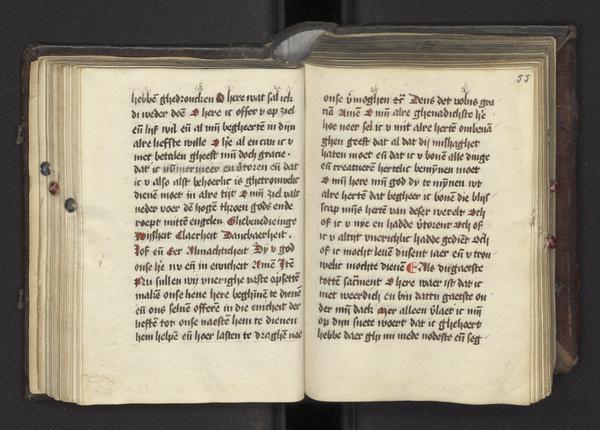 hebbē ghedroncken O here wat sal ick
di weder doē O here ic offer v op ziel
eñ lijf wil eñ al mij begheertē in dijn
alre liefste wille O h̄e al en can ic v
niet betalen gheeft mij doch gracie.
dat ic nēmermeer en v̄toren eñ dat
ic v also alst behoerlic is ghetrouwelic
dienē moet in alre tijt O mij ziel valt
neder voer dē hogē throen gods ende
roept mittē engelen Ghebenedienge
Wijsheit Claerheit Dancbaerheit.
Lof eñ Eer Almachticheit Sy v god
onse h̄e nv eñ in ewicheit Amē Itē
Nu sullen wij vuerighe vaste opsettē
makē onse lieue here beghinē te dienē
eñ ons seluē offerē in die enicheit der
liefstē tot onse naestē hem te dienen
hem helpē eñ hoer lasten te draghē nae
55
onse v̄moghen etc̄ Deus det vobis gra
tiā Amē O mij alre ghenadichste h̄e
hoe neer sel ic v mit alre hertē ombeuā
ghen geeft dat al dat dij mishaghet
haten moet eñ dat ic v bouē alle dinge
eñ creatuerē hertelic beminen moet
O mij here mij god dy te minen wt
alre hertē dat begheer ic bouē die blijs
scap mijs hertē van deser werelt Och
of ic v nye en hadde v̄torent Och of
ic v altijt vuerichlic hadde gediēt Och
of ic mocht leuē dusent iaer eñ v trou
welic mochte dienē Alse du gaetste
tottē sacrament O here waer ist dat ic
niet weerdich en bin dattu gaetste on
der mij dack mer alleen v̄laet ic mij
op dijn suete woert dat ic ghehoert
hebbe daer ghi mi mede nodeste eñ seg